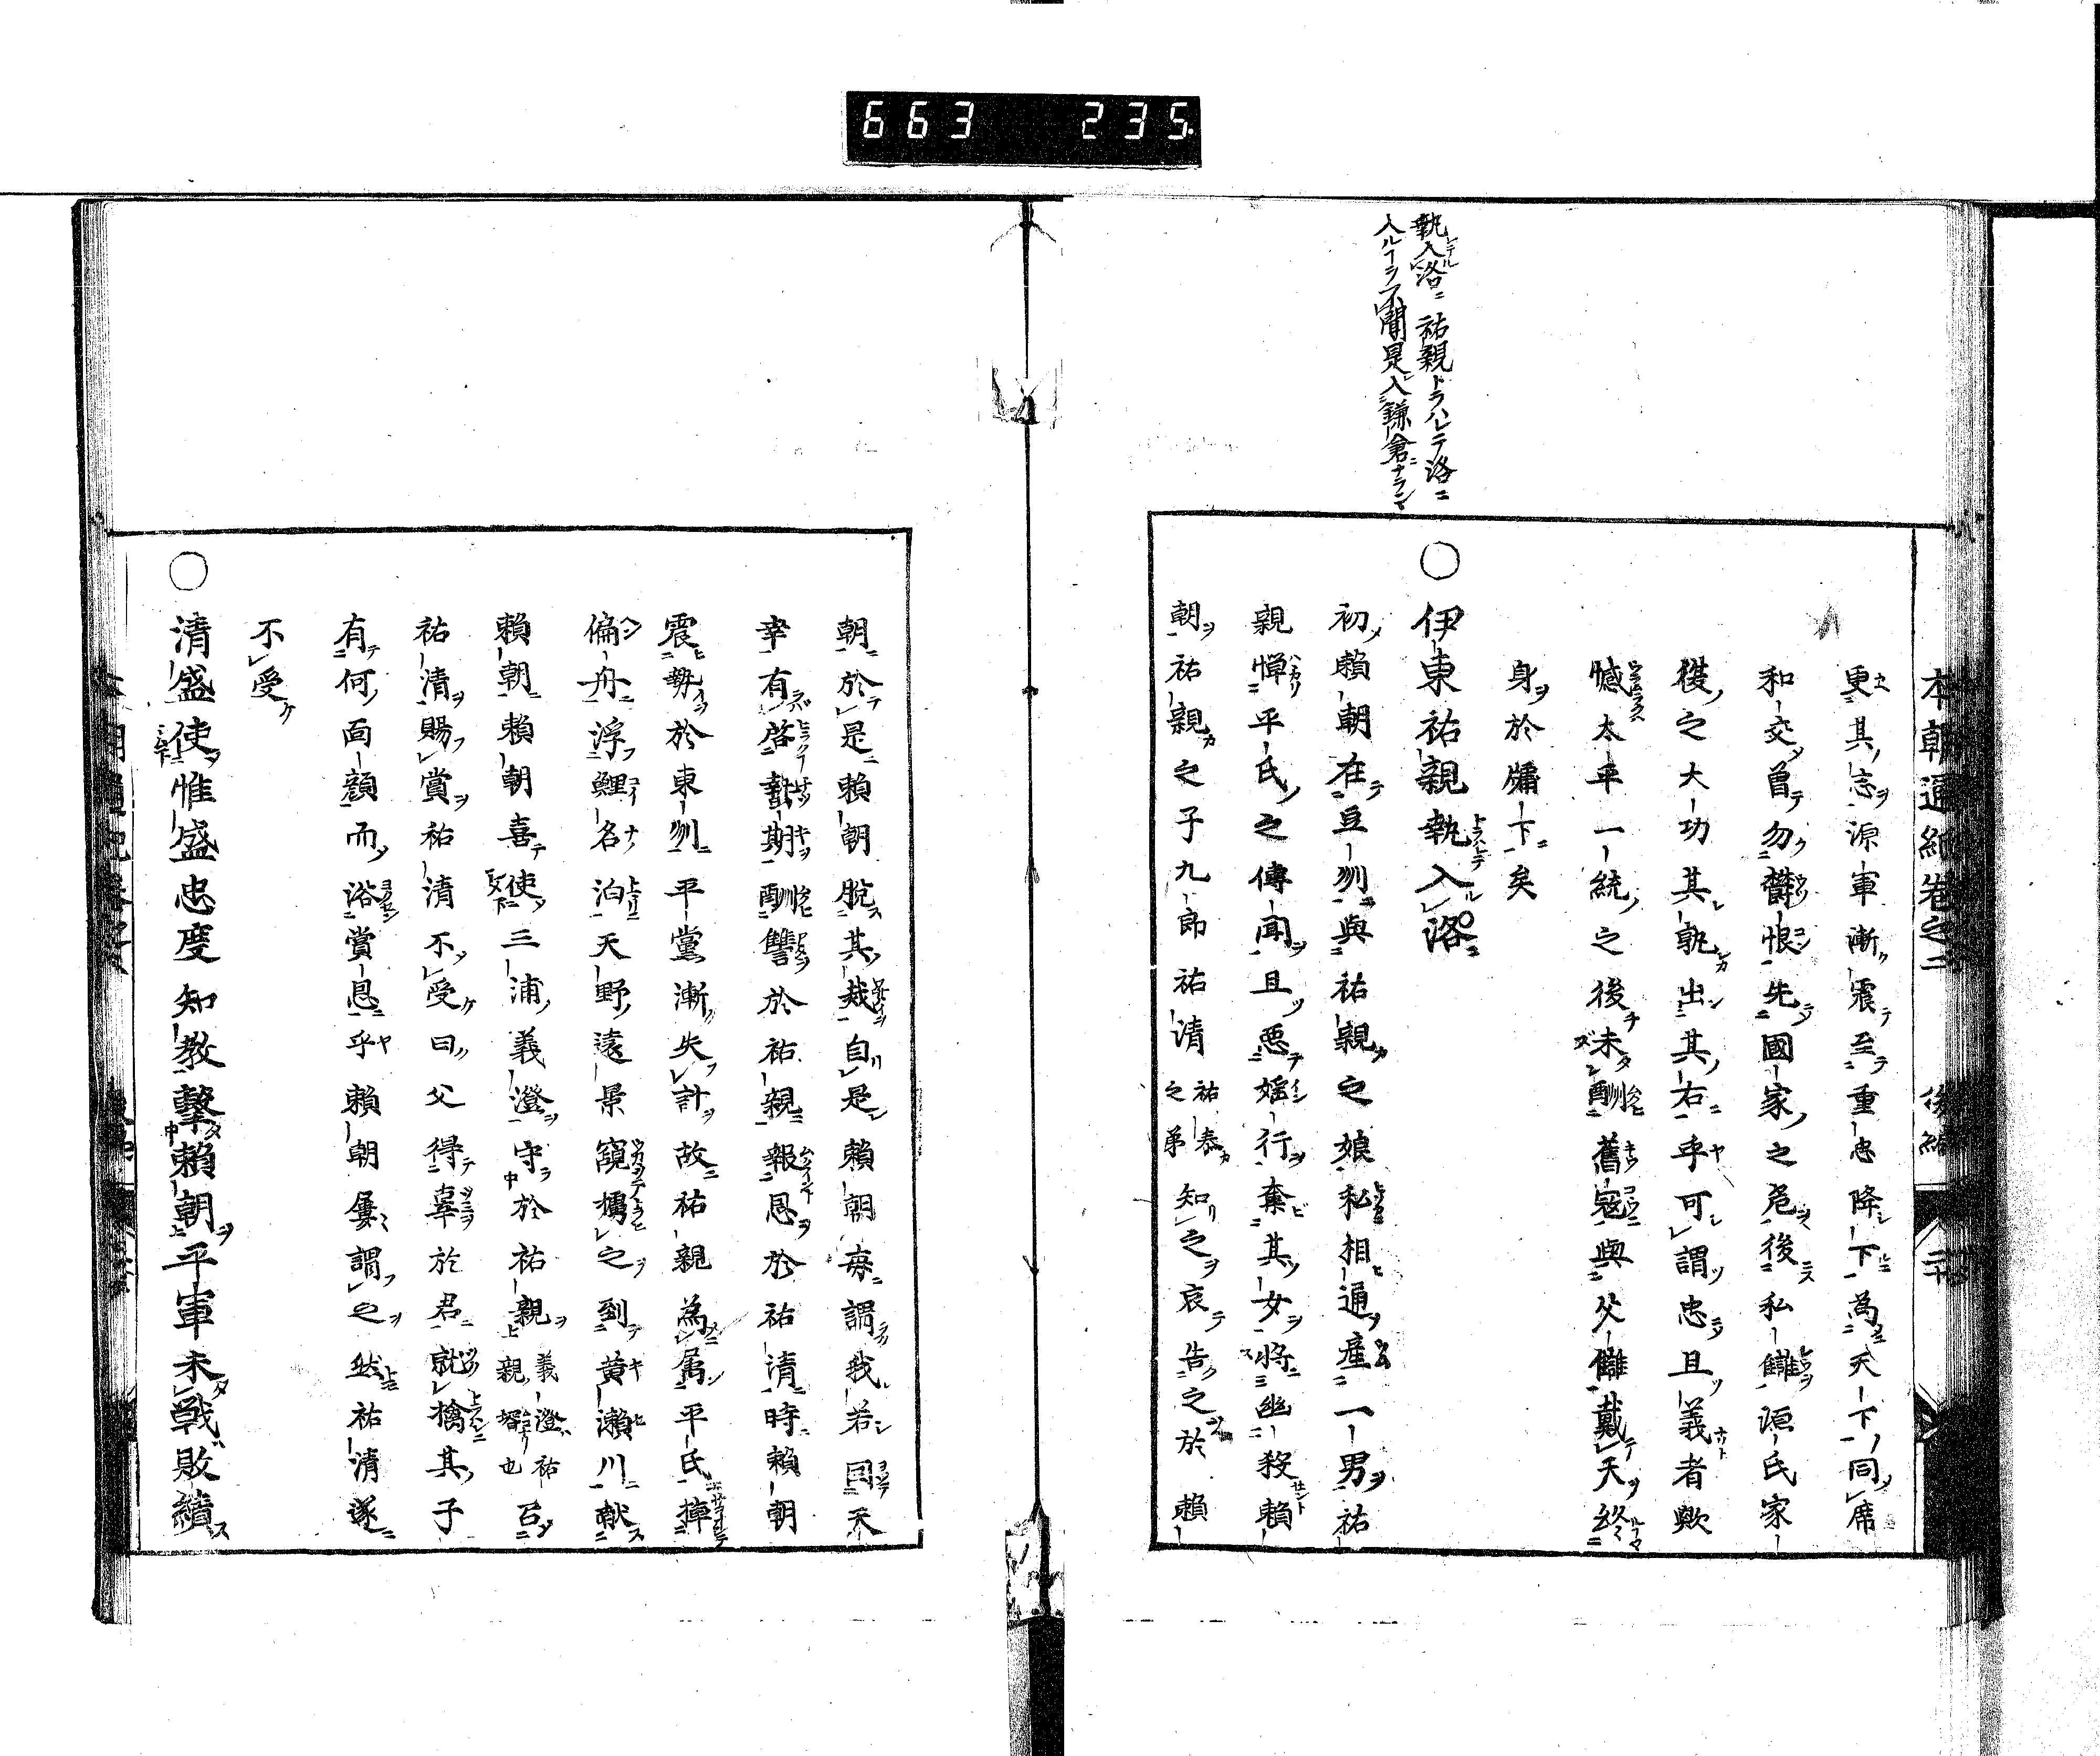 663 235
執入洛ニ祐親トラハレテ洛ニ
入ルヿヲ不聞是入鎌倉ナラン
本朝通紀卷之二 後編
更其忘源軍漸震至重忠降下為天下同席
和交曾勿欝恨先國家之危後私讎源氏家
從之大功其孰出其右乎可謂忠且義者歟
憾太平一統之後未酬舊寇與父讎戴天終
身於牖下矣
○伊東祐親執入洛
初賴朝在豆州與祐親之娘私相通產一男祐
親憚平氏之傳聞且惡婬行奪其女將幽殺賴
朝祐親之子九郎祐清 祐泰之弟 知之哀告之於賴
朝於是賴朝脫其烖自是賴朝每謂我若回天
幸有啓蟄期酬讐於祐親報恩於祐清時賴朝
震勢於東州平黨漸失計故祐親為属平氏揮
偏舟浮鯉名泊天野遠景窺擒之到黃瀨川献
賴朝賴朝喜使三浦義澄守於祐親 義澄祐親壻也 召
祐清賜賞祐清不受曰父得辜於君就擒其子
有何面顔而浴賞恩乎賴朝屢謂之然祐清遂
不受
○清盛使惟盛忠度知教擊賴朝平軍未戦敗績